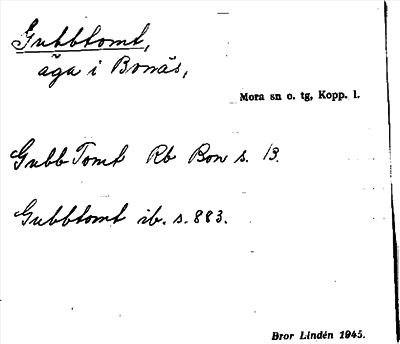 Gubbtomt,
äga i Bonäs,
Mora sn o. tg, Kopp. l.
Gubb Tomt Rb Bon s. 13.
Gubbtomt ib. s. 883.
Bror Lindén 1945.